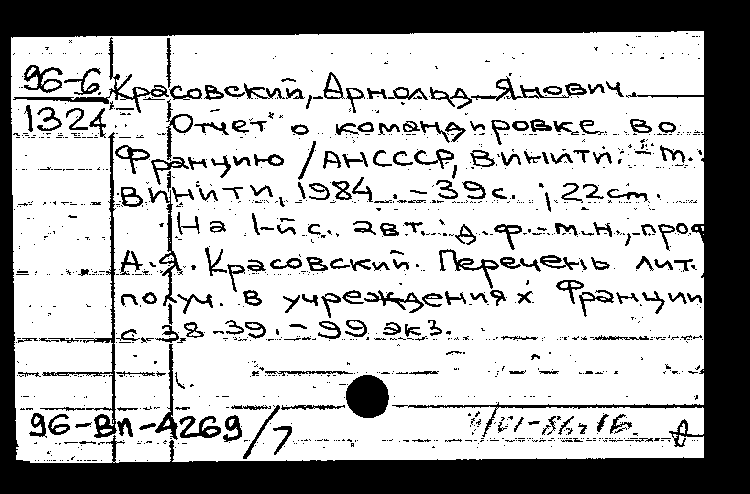 96-6 Красовский, Арнольд Янович.
1324 Отчет о командировке во
Францию / АН СССР, ВИНИТИ. - М.:
ВИНИТИ, 1984. - 39 с. ; 22 см.
На 1-й с. авт.: д. ф.-м.н., проф
А.Я. Красовский. Перечень лит.,
получ. в учреждениях Франции
с 38-39. - 99 экз.
96-Вп-4269/7